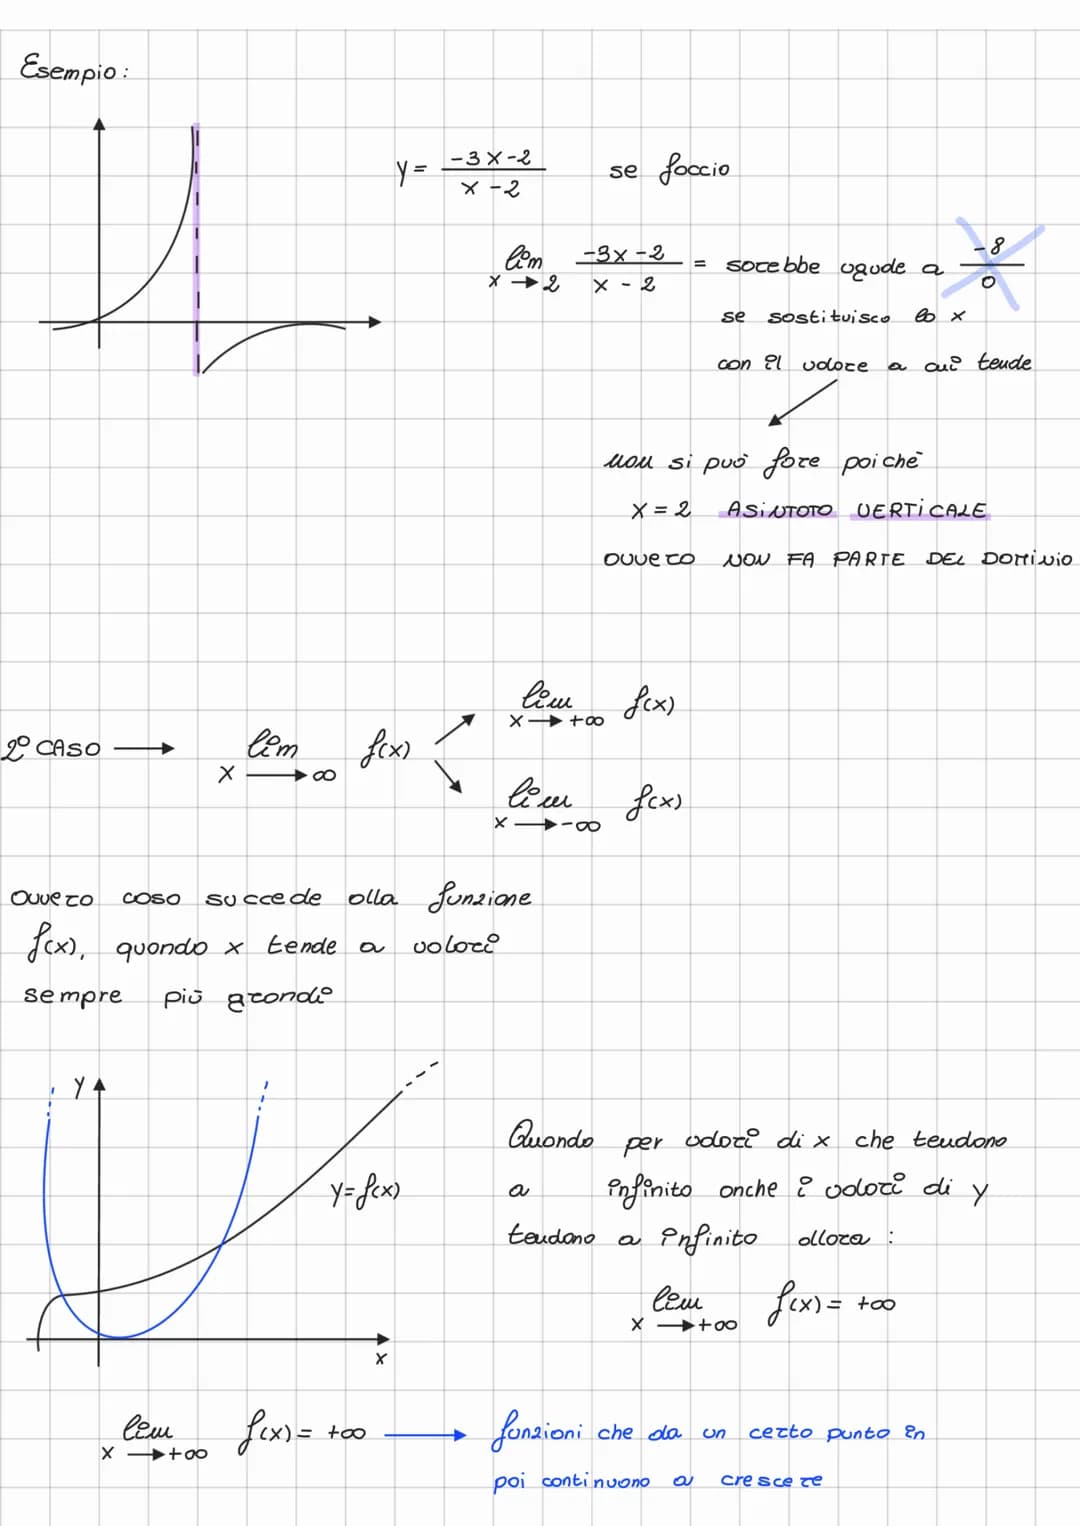 Esempio:
y = (-3x-2)/(x-2) se faccio
lim x→2 (-3x-2)/(x-2) = sarebbe uguale a -8/0
se sostituisco la x
con il valore a cui tende
non si può fare poichè
x = 2 ASINTOTO VERTICALE
ovvero NON FA PARTE DEL DOMINIO
2° CASO → lim x→∞ f(x)
lim x→+∞ f(x)
lim x→-∞ f(x)
ovvero cosa succede alla funzione
f(x), quando x tende a valori
sempre più grandi
y
y=f(x)
x
Quando per valori di x che tendono
a infinito anche i valori di y
tendono a infinito allora :
lim x→+∞ f(x) = +∞
lim x→+∞ f(x) = +∞ → funzioni che da un certo punto in
poi continuano a crescere